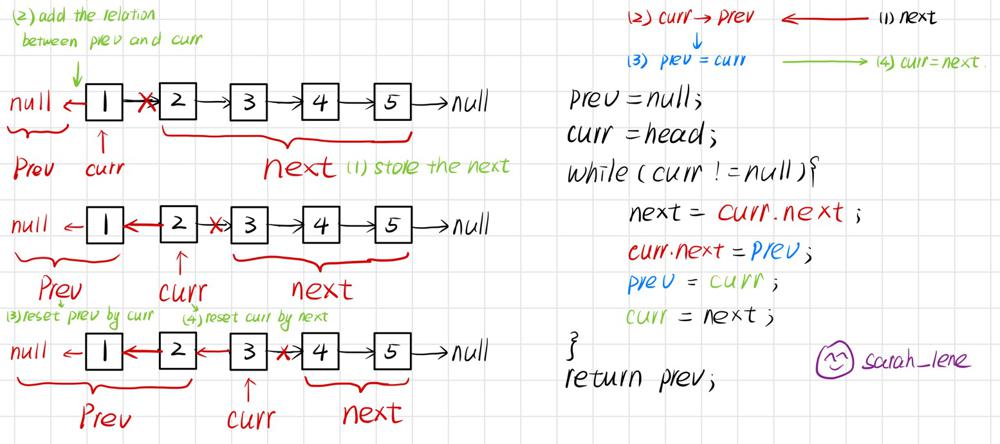 (2) add the relation
between prev and curr
null ← 1 → 2 → 3 → 4 → 5 → null
Prev curr next (1) store the next
null ← 1 ← 2 → 3 → 4 → 5 → null
Prev curr next
(3) reset prev by curr (4) reset curr by next
null ← 1 ← 2 ← 3 → 4 → 5 → null
Prev curr next
(2) curr → prev ← (1) next
(3) prev = curr → (4) curr = next.
prev = null;
curr = head;
while (curr != null){
next = curr.next ;
curr.next = prev;
prev = curr;
curr = next;
}
return prev;
sarah_lene